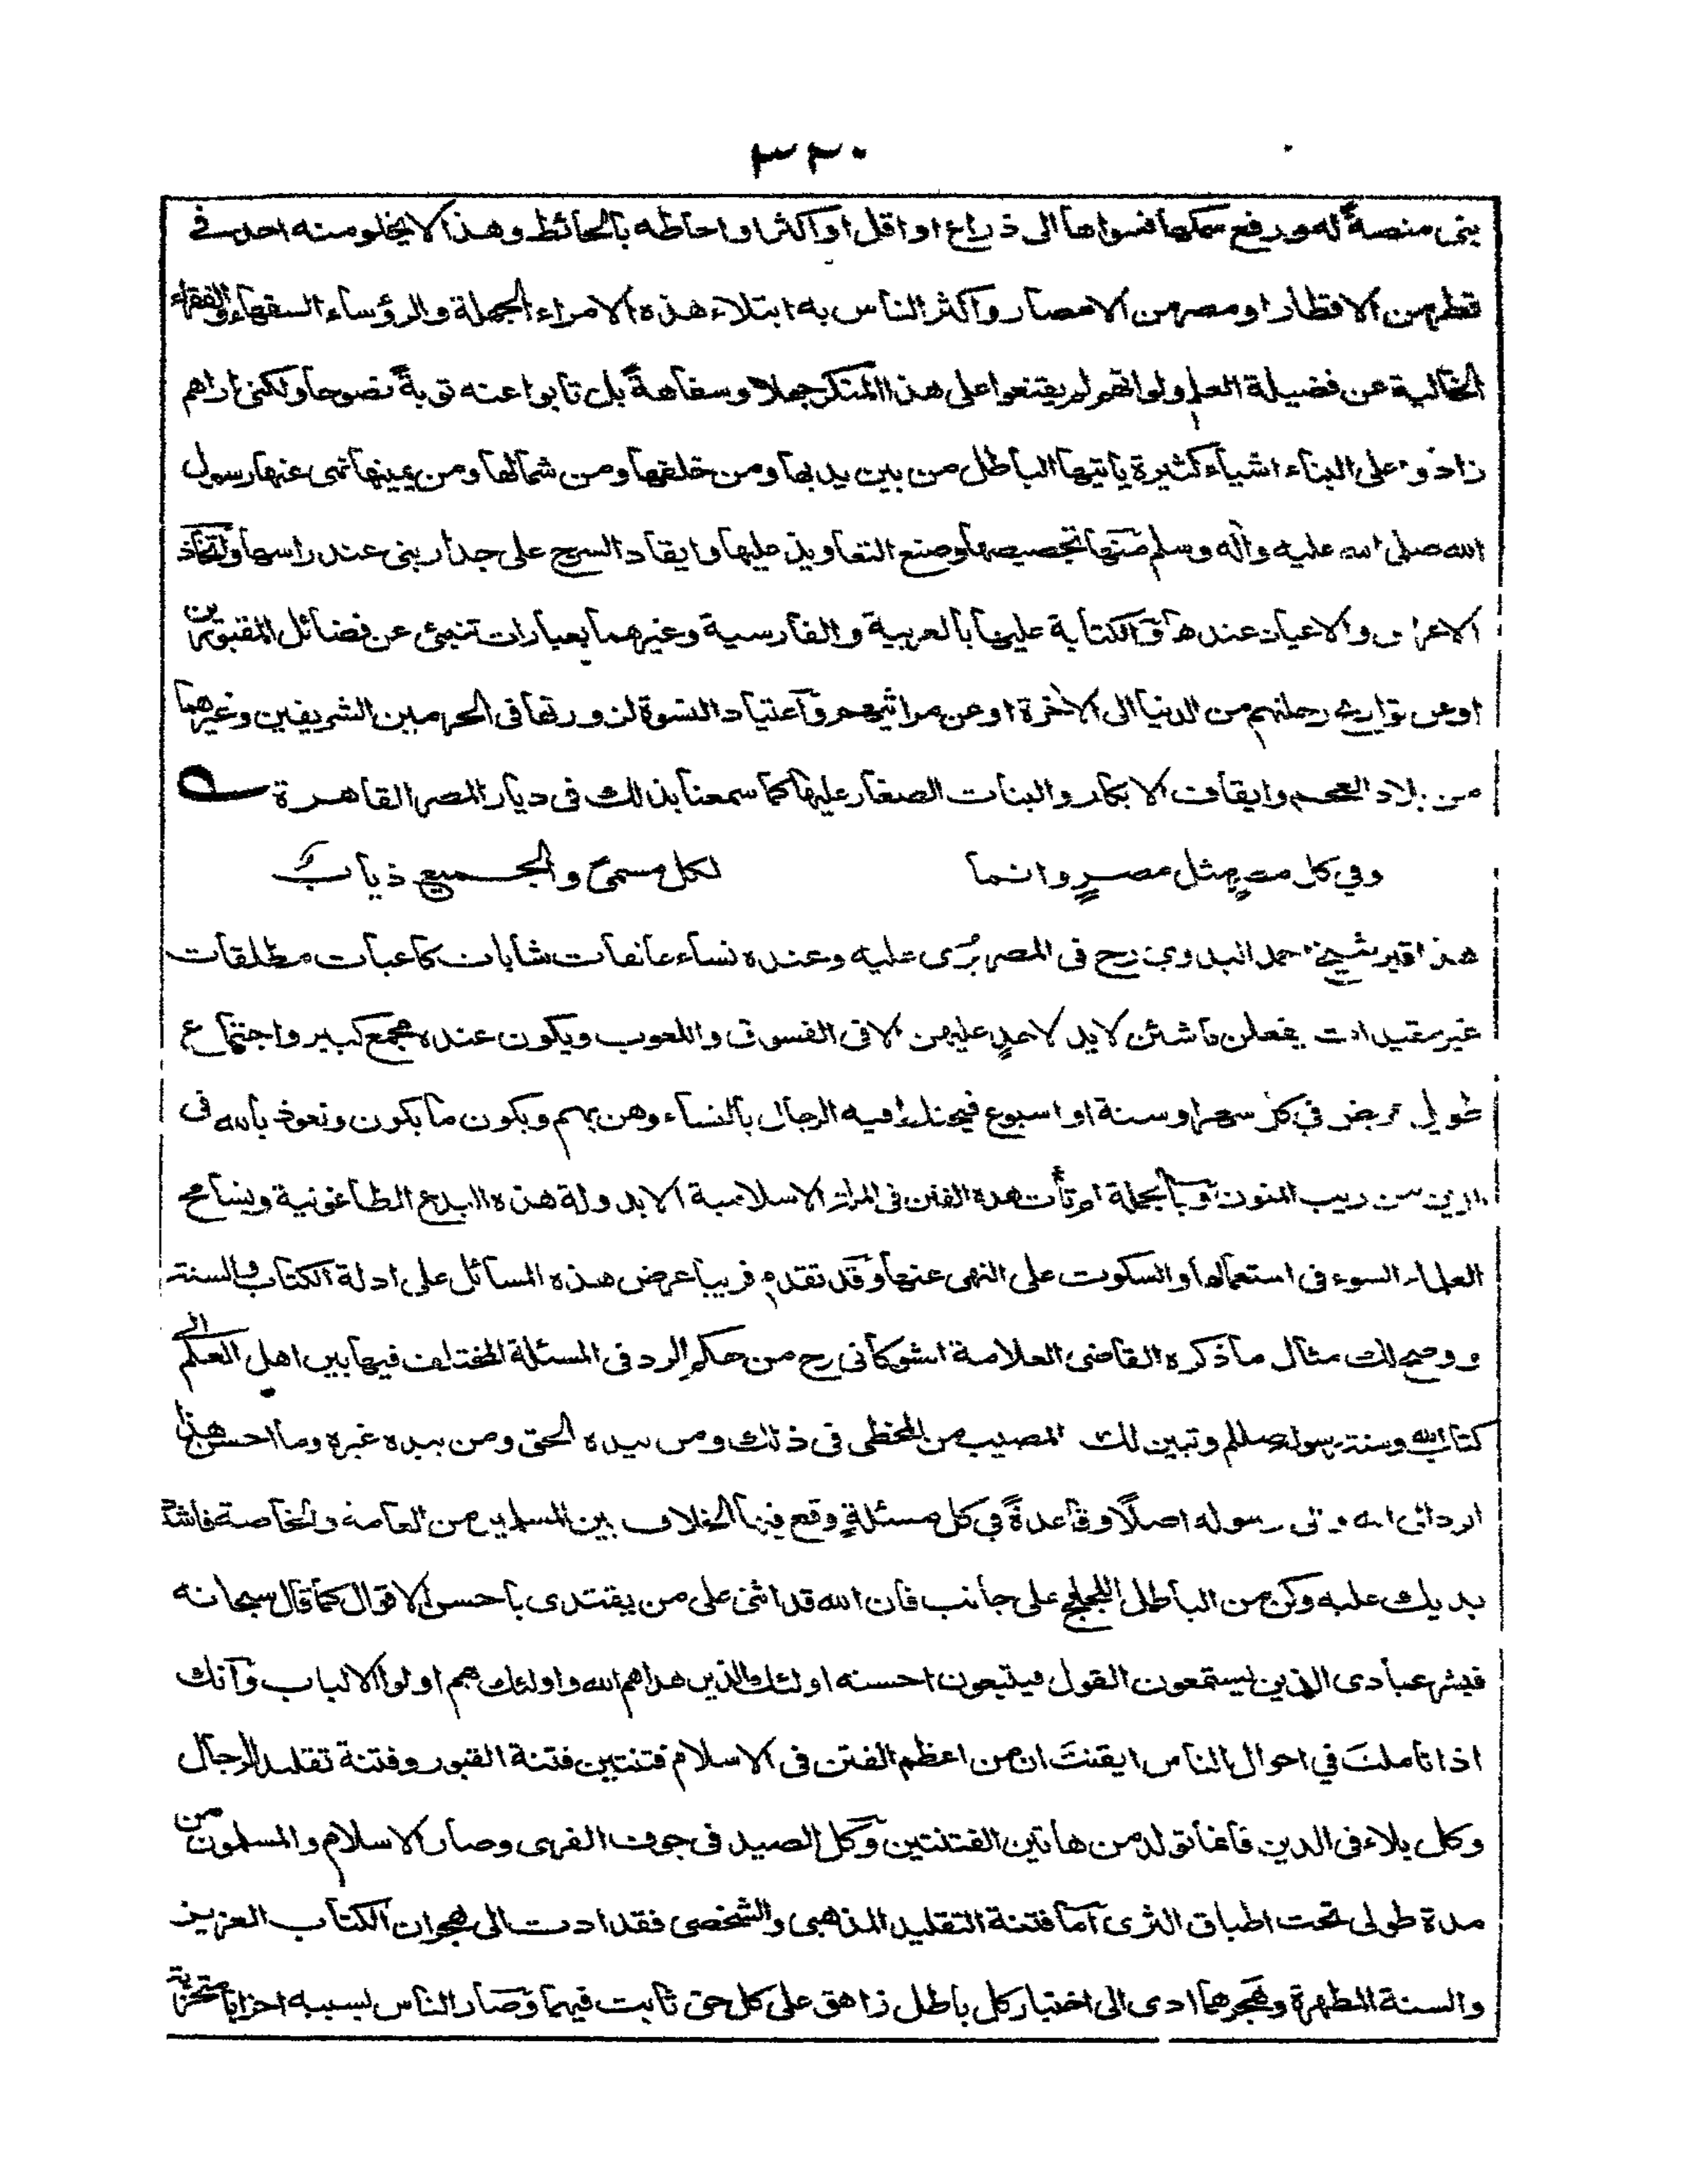 ٣٢٠
بنى منصةً له ورفع سمكها فسواها الى ذراع او اقل او اكثر او احاطه بالحائط وهذا لا يخلو منه احد في
قطر من الاقطار او مصر من الامصار واكثر الناس به ابتلاء هذه الامراء الجهلة والرؤساء السفهاء والفقراء
الخالية عن فضيلة العلم ولو انهم لم يقتنعوا على هذا المنكر جهلا وسفاهةً بل تابوا عنه توبةً نصوحا ولكنى اراهم
زادوا على البناء اشياء كثيرة ياتيها الباطل من بين يديها ومن خلفها ومن شمالها ومن يمينها نهى عنها رسول
الله صلى الله عليه وآله وسلم منها تجصيصها وصنع التعاويذ عليها وايقاد السرج على جدار بنى عند راسها واتخاذ
الاعراس والاعياد عندها والكتابة عليها بالعربية والفارسية وغيرهما بعبارات تنبئ عن فضائل المقبورين
او عن تواريخ رحلتهم من الدنيا الى الآخرة او عن مراثيهم واعتياد النسوة لزورتها فى الحرمين الشريفين وغيرهما
من بلاد العجم وايقاف الابكار والبنات الصغار عليها كما سمعنا بذلك فى ديار المصر القاهرة
وفي كل مصرٍ مثل مصرٍ وانما لكل مسمىً والجميع ذياب
هذا قبر شيخ احمد البدوي رح فى المصر يُرى عليه وعنده نساء شابات كاعبات مطلقات
غير مقيدات يفعلن ما شئن لا يد لاحدٍ عليهن الا فى الفسوق واللعوب ويكون عنده مجمع كبير واجتماع
طويل عريض في كل شهر او سنة او اسبوع فيختلط فيه الرجال بالنساء وهن بهم ويكون ما يكون ونعوذ بالله فى
الدين من ريب المنون وبالجملة ما تأت هذه الفتن فى الاسلامية الا بدولة هذه البدع الطاغوتية وتسامح
العلماء السوء فى استعمالها والسكوت على النهى عنها وقد تقدم قريبا عرض هذه المسائل على ادلة الكتاب والسنة
ووضح لك مثال ما ذكره القاضى العلامة الشوكانى رح من حكم الرد فى المسئلة المختلف فيها بين اهل العلم الى
كتاب الله وسنة رسوله صللم وتبين لك المصيب من المخطى فى ذلك ومن بيده الحق ومن بيده غيره وما احسن هذا
الرد الى الله والى رسوله اصلًا وقاعدةً في كل مسئلةٍ وقع فيها الخلاف بين المسلمين من العامة والخاصة فاشدد
بديك عليه وكن من الباطل اللجلج على جانب فان الله قد اثنى على من يقتدى باحسن الاقوال كما قال سبحانه
فبشر عبادى الذين يستمعون القول فيتبعون احسنه اولئك الذين هداهم الله واولئك هم اولوا الالباب وانك
اذا تاملتَ في احوال الناس ايقنتَ ان من اعظم الفتن فى الاسلام فتنتين فتنة القبور وفتنة تقليد الرجال
وكل بلاء فى الدين فانما تولد من هاتين الفتنتين وكل الصيد فى جوف الفرى وصار الاسلام والمسلمون من
مدة طولى تحت اطباق الثرى اما فتنة التقليد المذهبى والشخصى فقد ادت الى هجران الكتاب العزيز
والسنة المطهرة وهجرهما ادى الى اختيار كل باطل زاهق على كل حق ثابت فيهما وصار الناس بسببه احزابا متحزبة